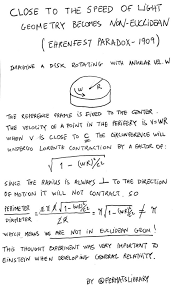 CLOSE TO THE SPEED OF LIGHT
GEOMETRY BECOMES NON-EUCLIDEAN
(EHRENFEST PARADOX - 1909)
IMAGINE A DISK ROTATING WITH ANGULAR VEL. W
W
R
THE REFERENCE FRAME IS FIXED TO THE CENTER.
THE VELOCITY OF A POINT IN THE PERIFERY IS V=WR
WHEN V IS CLOSE TO C THE CIRCUNFERENCE WILL
UNDERGO LORENTZ CONTRACTION BY A FACTOR OF:
√1 - (WR)²/c²
SINCE THE RADIUS IS ALWAYS ⊥ TO THE DIRECTION
OF MOTION IT WILL NOT CONTRACT. SO
PERIMETER/DIAMETER = 2πR√1-(WR)²/c² / 2R = π√1-(WR)²/c² ≠ π
WHICH MEANS WE ARE NOT IN EUCLIDEAN GEOM!
THIS THOUGHT EXPERIMENT WAS VERY IMPORTANT TO
EINSTEIN WHEN DEVELOPING GENERAL RELATIVITY.
BY @FERMATSLIBRARY